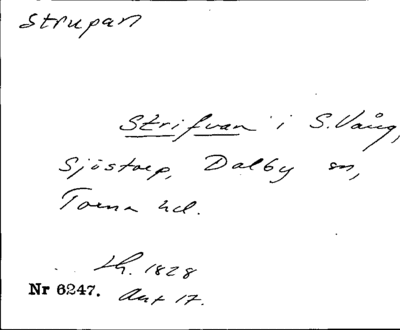 Strupan
Strifvan i S. Vång,
Sjöstorp, Dalby sn,
Torna hd.
Lh. 1828
Nr 6247. Akt 17.